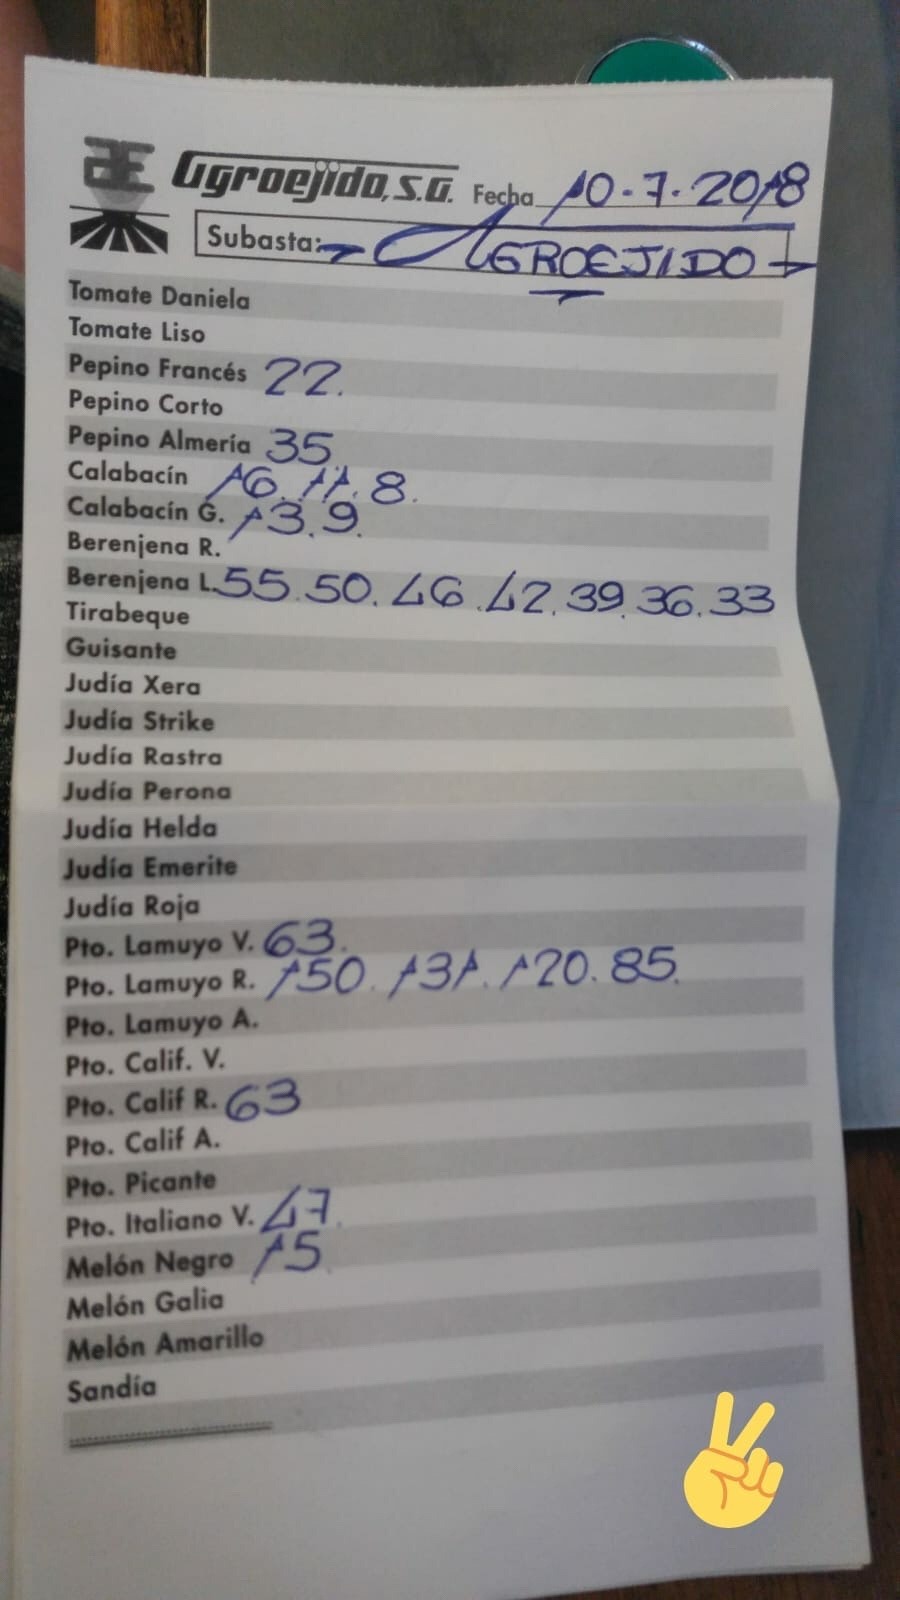 AE Agroejido, S.A. Fecha 10-7-2018
Subasta: AGROEJIDO
Tomate Daniela
Tomate Liso
Pepino Francés 22.
Pepino Corto
Pepino Almería 35
Calabacín 16. 11. 8.
Calabacín G. 13. 9.
Berenjena R.
Berenjena L. 55. 50. 46. 42. 39. 36. 33
Tirabeque
Guisante
Judía Xera
Judía Strike
Judía Rastra
Judía Perona
Judía Helda
Judía Emerite
Judía Roja
Pto. Lamuyo V. 63.
Pto. Lamuyo R. 150. 131. 120. 85.
Pto. Lamuyo A.
Pto. Calif. V.
Pto. Calif R. 63
Pto. Calif A.
Pto. Picante
Pto. Italiano V. 47.
Melón Negro 15.
Melón Galia
Melón Amarillo
Sandía